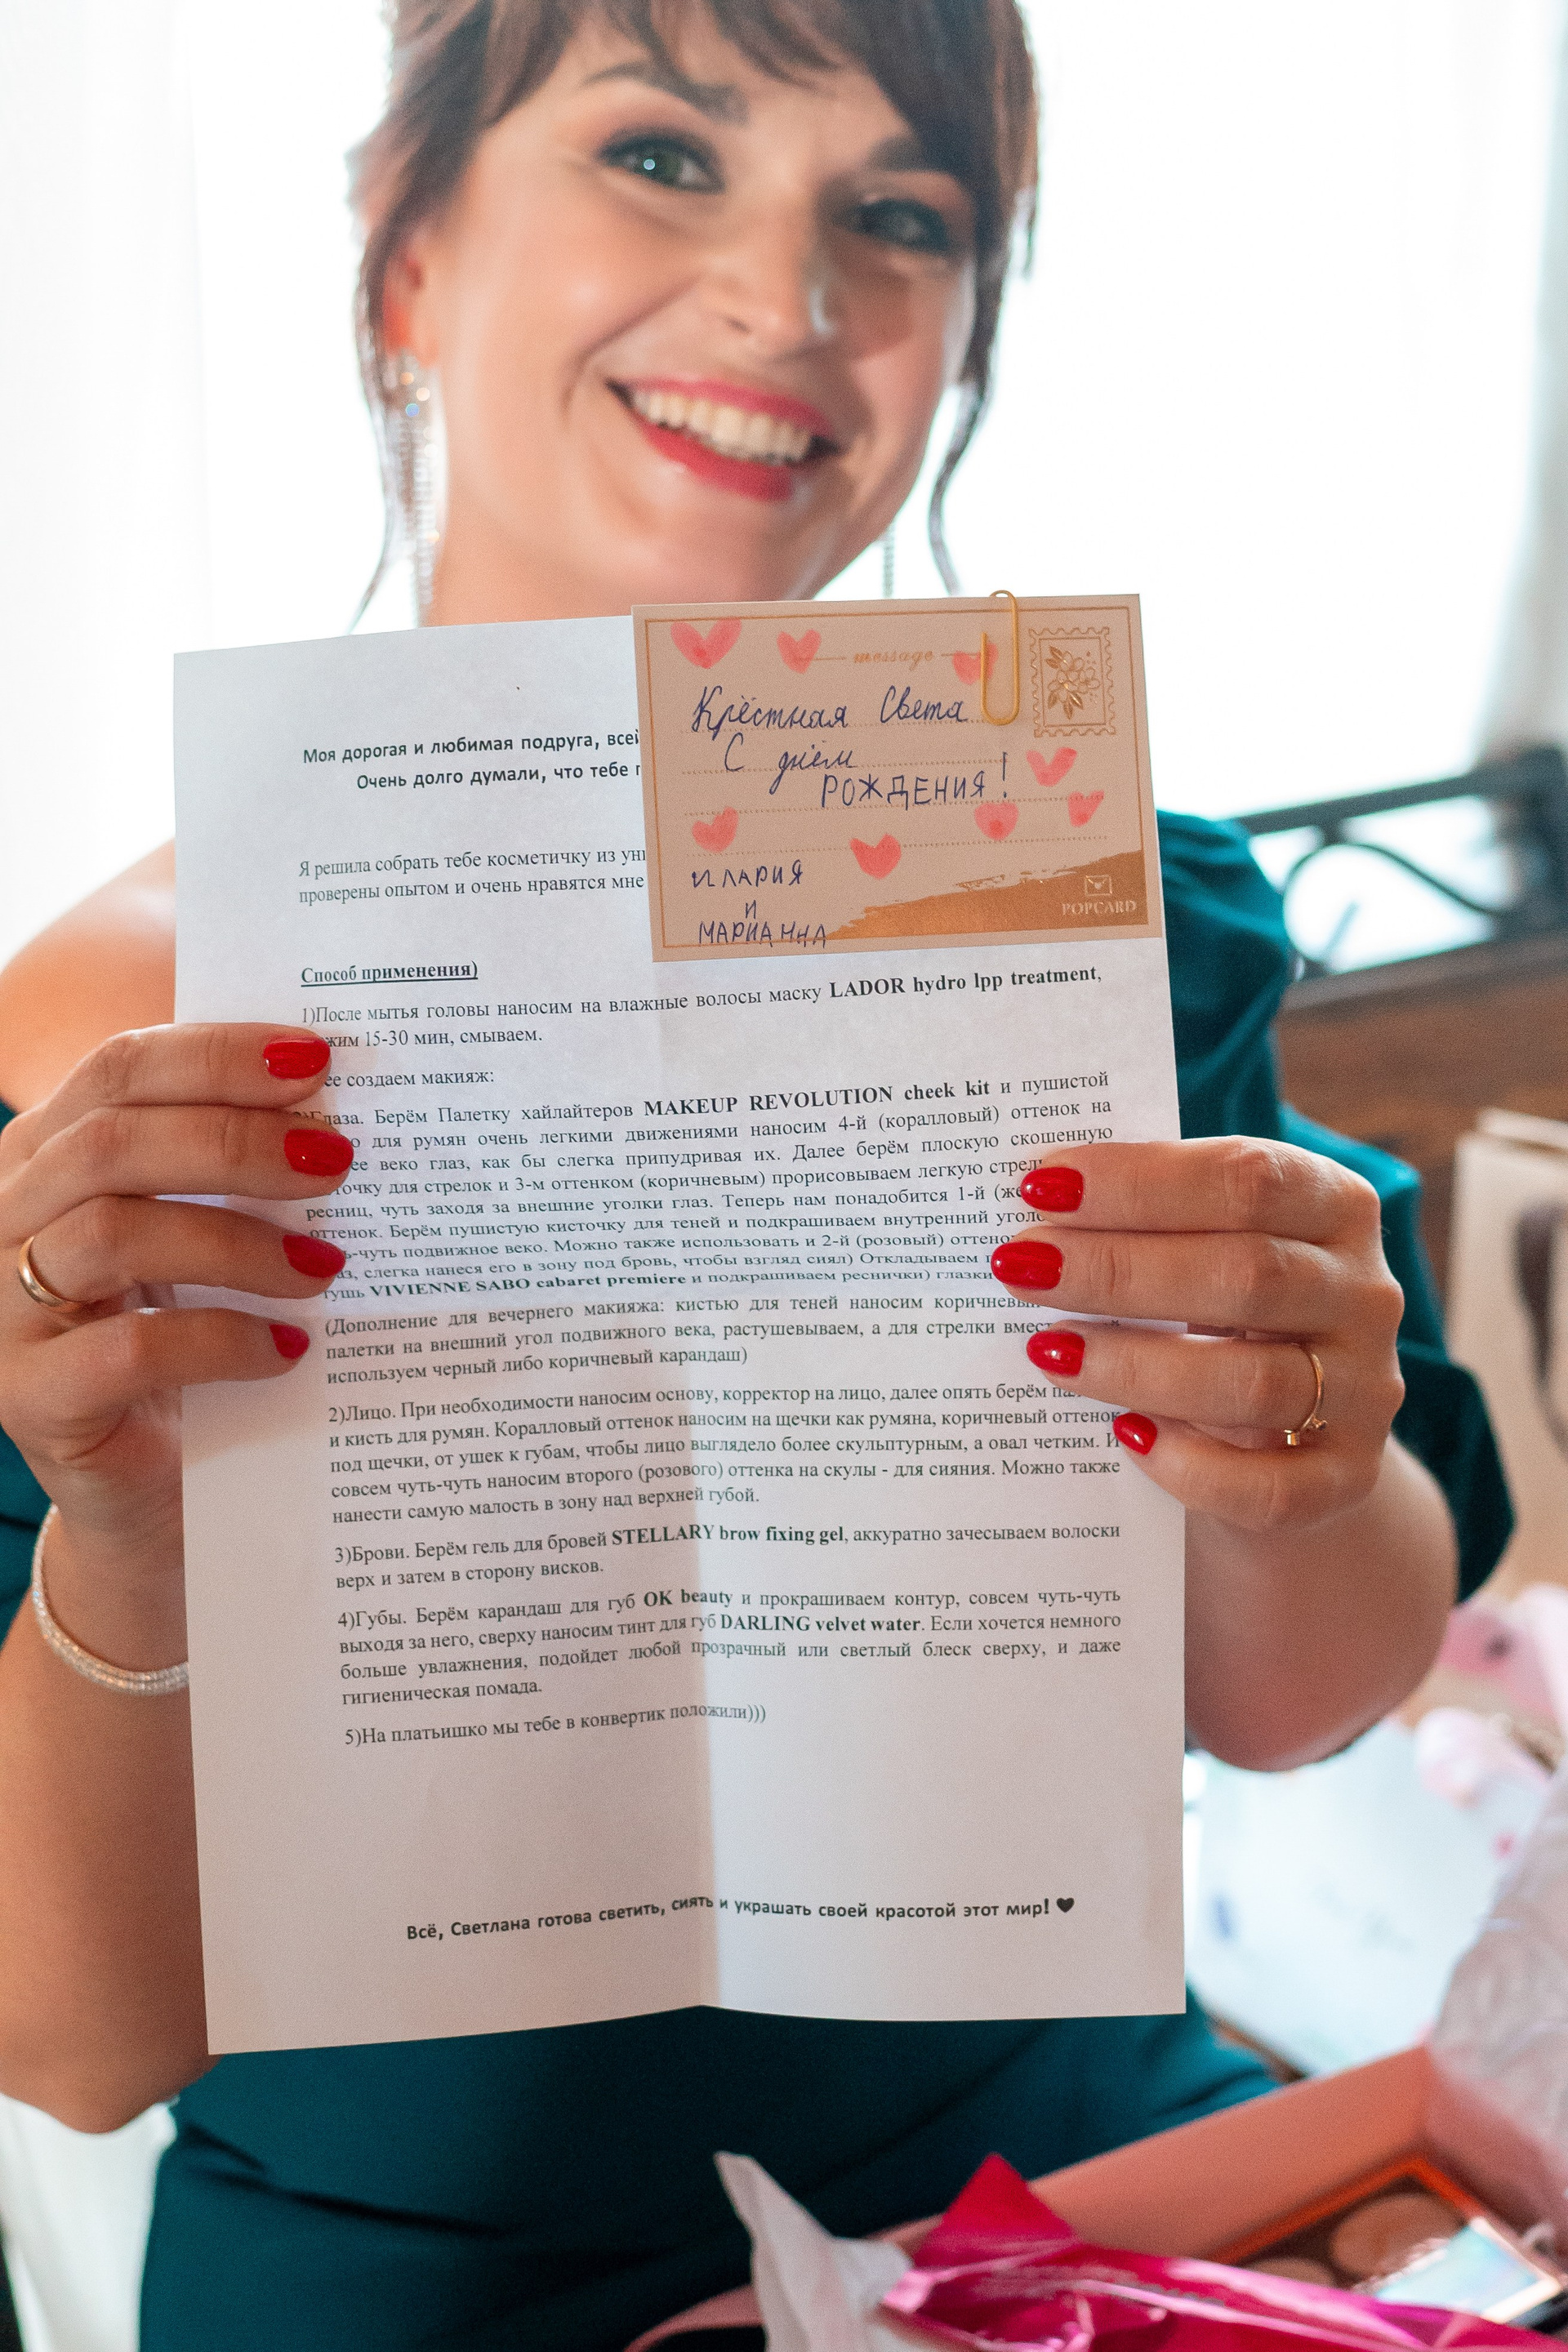 message
Крёстная Света
С днём
РОЖДЕНИЯ!
ИЛАРИЯ
И
МАРИАННА
POPCARD
Моя дорогая и любимая подруга, всей
Очень долго думали, что тебе
Я решила собрать тебе косметичку из
проверены опытом и очень нравятся мне
Способ применения)
1)После мытья головы наносим на влажные волосы маску LADOR hydro lpp treatment,
15-30 мин, смываем.
создаем макияж:
Глаза. Берём Палетку хайлайтеров MAKEUP REVOLUTION cheek kit и пушистой
для румян очень легкими движениями наносим 4-й (коралловый) оттенок на
веко глаз, как бы слегка припудривая их. Далее берём плоскую скошенную
для стрелок и 3-м оттенком (коричневым) прорисовываем легкую
ресниц, чуть заходя за внешние уголки глаз. Теперь нам понадобится 1-й
оттенок. Берём пушистую кисточку для теней и подкрашиваем внутренний
подвижное веко. Можно также использовать и 2-й (розовый)
слегка нанеся его в зону под бровь, чтобы взгляд сиял) Откладываем
тушь VIVIENNE SABO cabaret premiere и подкрашиваем реснички) глазки
(Дополнение для вечернего макияжа: кистью для теней наносим
палетки на внешний угол подвижного века, растушевываем, а для стрелки
используем черный либо коричневый карандаш)
2)Лицо. При необходимости наносим основу, корректор на лицо, далее опять берём
и кисть для румян. Коралловый оттенок наносим на щечки как румяна, коричневый оттенок
под щечки, от ушек к губам, чтобы лицо выглядело более скульптурным, а овал четким. И
совсем чуть-чуть наносим второго (розового) оттенка на скулы - для сияния. Можно также
нанести самую малость в зону над верхней губой.
3)Брови. Берём гель для бровей STELLARY brow fixing gel, аккуратно зачесываем волоски
верх и затем в сторону висков.
4)Губы. Берём карандаш для губ OK beauty и прокрашиваем контур, совсем чуть-чуть
выходя за него, сверху наносим тинт для губ DARLING velvet water. Если хочется немного
больше увлажнения, подойдет любой прозрачный или светлый блеск сверху, и даже
гигиеническая помада.
5)На платьишко мы тебе в конвертик положили)))
Всё, Светлана готова светить, сиять и украшать своей красотой этот мир! ♥